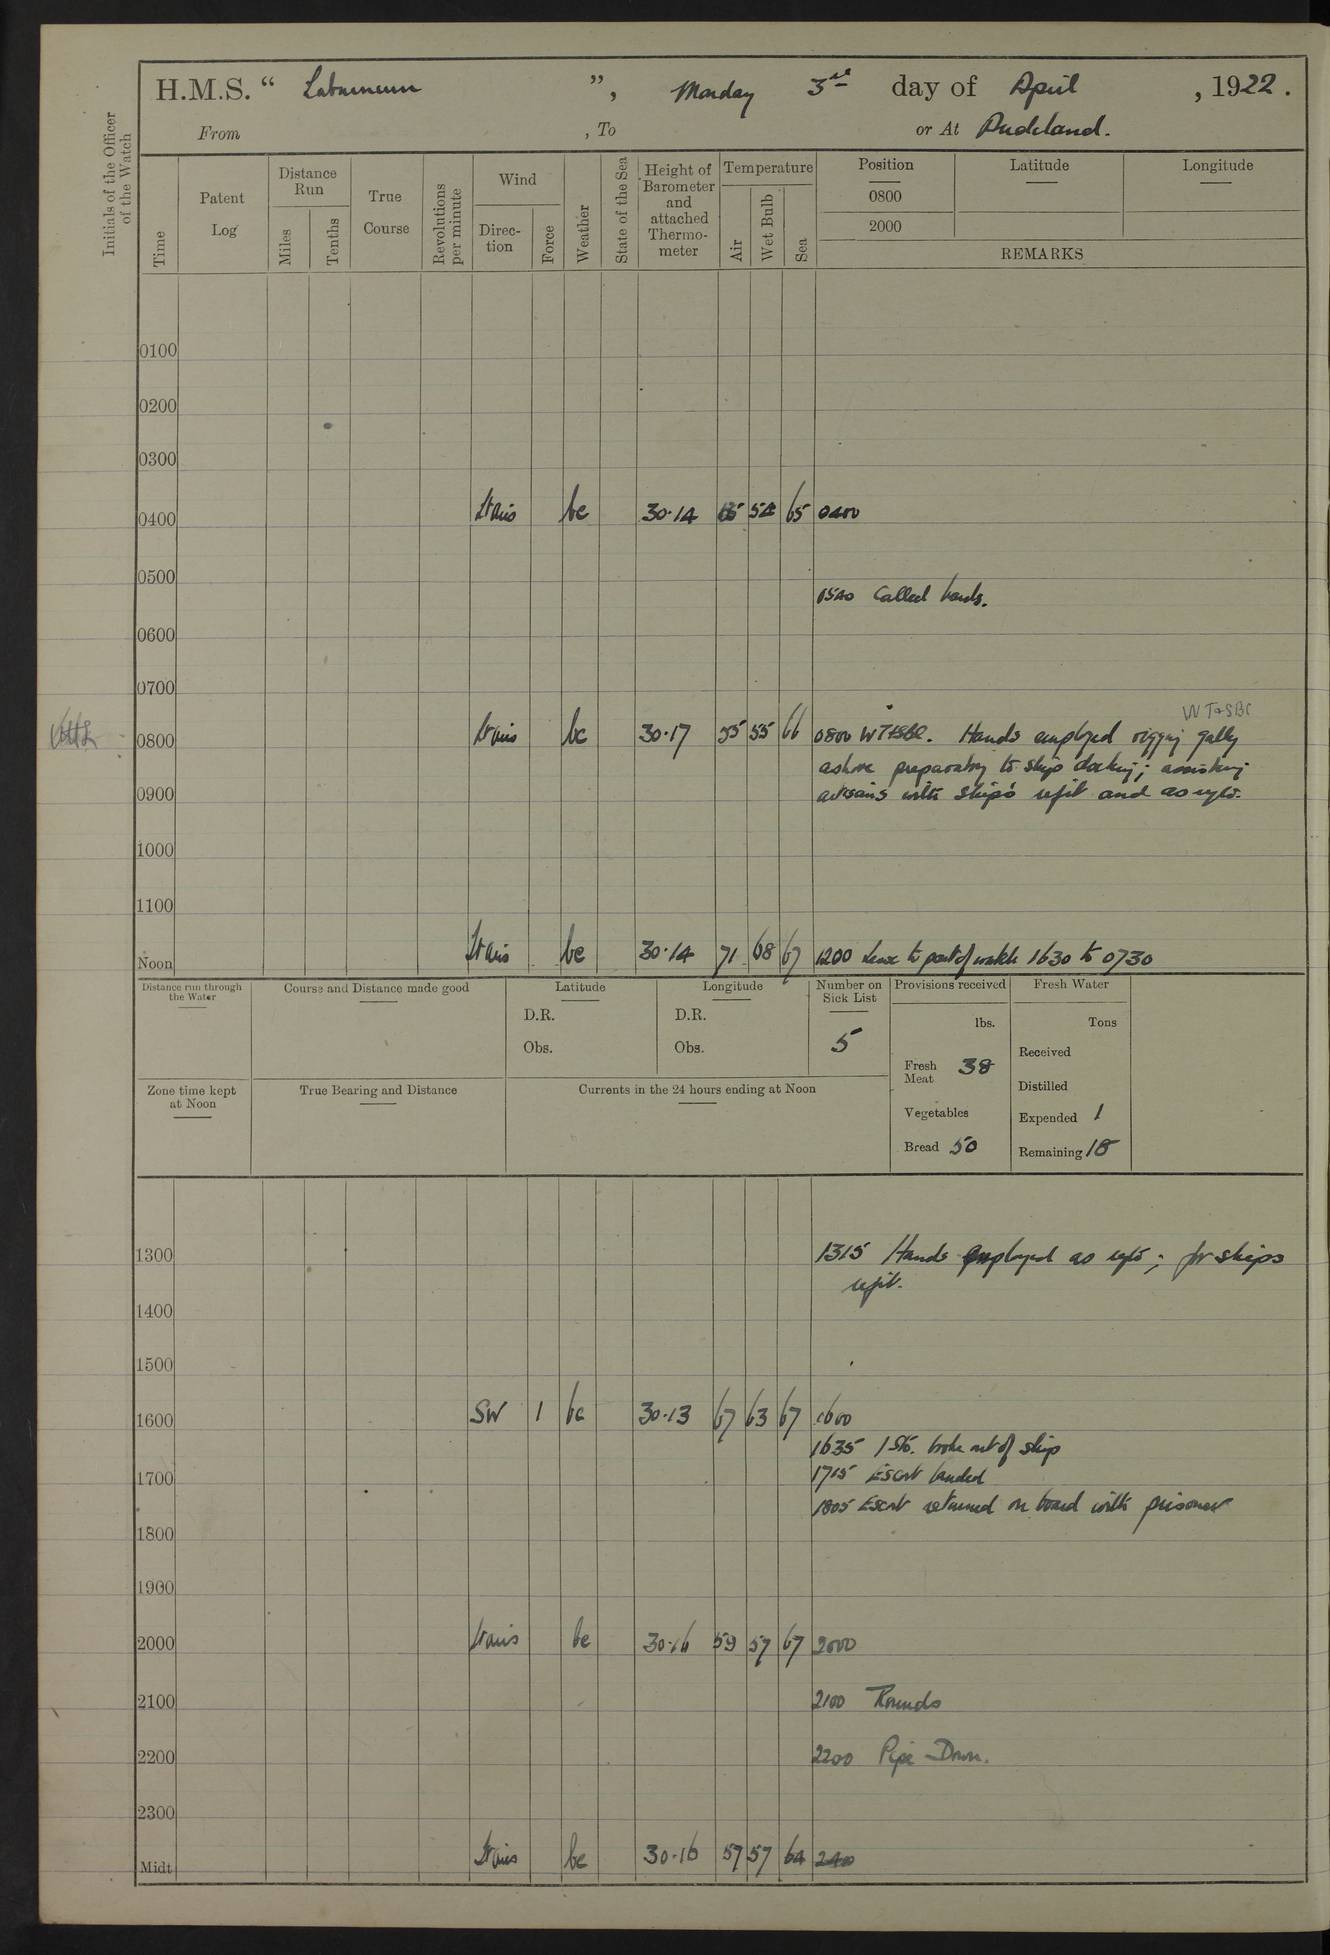 H.M.S. “ Laburnum ”, Monday 3rd day of April , 1922 .
From , To or At Auckland.
Initials of the Officer of the Watch
Time
Patent Log
Distance Run
Miles
Tenths
True Course
Revolutions per minute
Wind
Direction
Force
Weather
State of the Sea
Height of Barometer and attached Thermometer
Temperature
Air
Wet Bulb
Sea
Position
0800
2000
Latitude
Longitude
REMARKS
0100
0200
0300
0400 bc 30·14 54 65 0400
0500
0540 Called hands.
0600
0700
WT&SBC
0800 bc 30·17 55 55 66 0800 WT&SBC. Hands employed rigging galley
ashore preparatory to ship docking; assisting
0900 artisans with ship's refit and as reqd.
1000
1100
Noon bc 30·14 71 68 67 1200 Leave to part of watch 1630 to 0730
Distance run through the Water
Course and Distance made good
Latitude
D.R.
Obs.
Longitude
D.R.
Obs.
Number on Sick List
5
Provisions received
lbs.
Fresh Meat 38
Vegetables
Bread 50
Fresh Water
Tons
Received
Distilled
Expended 1
Remaining 18
Zone time kept at Noon
True Bearing and Distance
Currents in the 24 hours ending at Noon
1300 1315 Hands employed as reqd; for ships
refit.
1400
1500
1600 SW 1 bc 30·13 67 63 67 1600
1635 1 Sto. broke out of ship
1700 1715 Escort landed
1805 Escort returned on board with prisoner
1800
1900
2000 bc 30·16 59 57 67 2000
2100 2100 Rounds
2200 2200 Pipe Down.
2300
Midt bc 30·16 57 57 64 2400